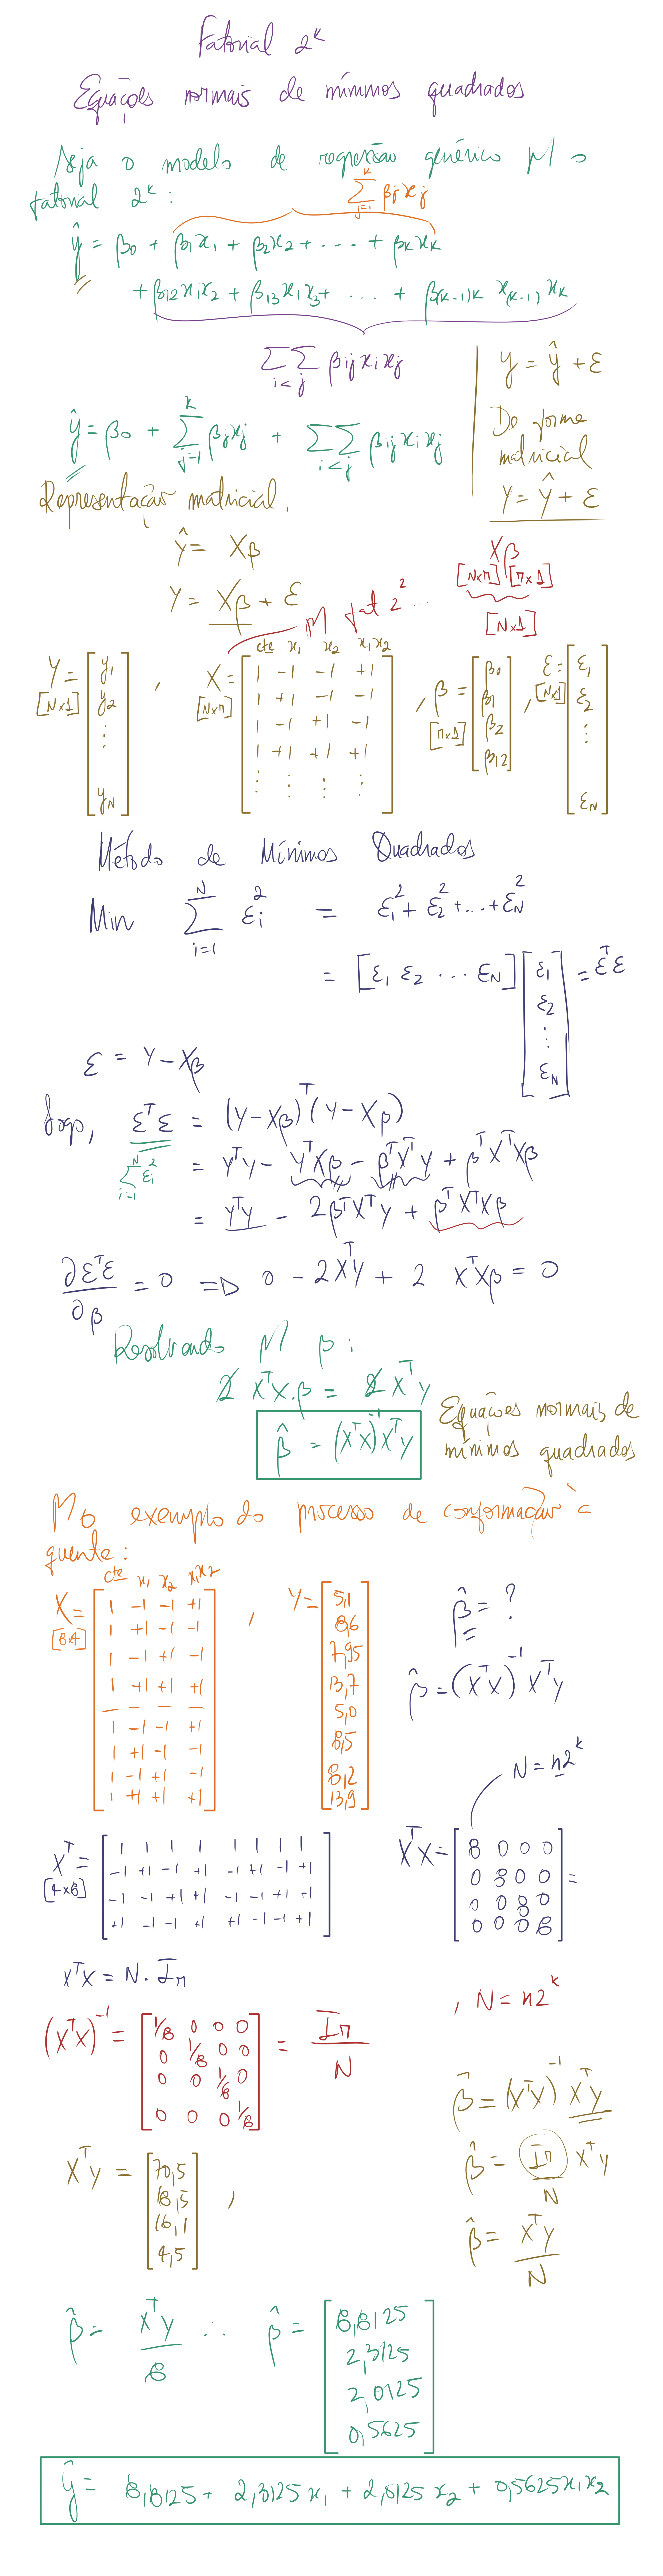 Fatorial 2^k
Equações normais de mínimos quadrados
Seja o modelo de regressão genérico p/ o
fatorial 2^k:
∑_{j=1}^{k} βjxj
ŷ = β0 + β1x1 + β2x2 + ... + βkxk
+ β12x1x2 + β13x1x3 + ... + β(k-1)k x(k-1)xk
∑∑_{i<j} βijxixj
y = ŷ + ε
De forma
matricial
Y = Ŷ + ε
ŷ = β0 + ∑_{j=1}^{k} βjxj + ∑∑_{i<j} βijxixj
Representação matricial.
Ŷ = Xβ
Y = Xβ + ε
p/ fat 2^2...
Xβ
[N×n] [n×1]
[N×1]
cte x1 x2 x1x2
Y = [y1 y2 ⋮ yN], X = [1 -1 -1 +1
1 +1 -1 -1
1 -1 +1 -1
1 +1 +1 +1
⋮ ⋮ ⋮ ⋮], β = [β0 β1 β2 β12], ε = [ε1 ε2 ⋮ εN]
[N×1] [N×n] [n×1] [N×1]
Método de Mínimos Quadrados
Min ∑_{i=1}^{N} εi^2 = ε1^2 + ε2^2 + ... + εN^2
= [ε1 ε2 ... εN] [ε1 ε2 ⋮ εN] = ε^T ε
ε = Y - Xβ
Logo, ε^T ε = (y - Xβ)^T (y - Xβ)
∑_{i=1}^{N} εi^2
= Y^T y - y^T Xβ - β^T X^T y + β^T X^T Xβ
= Y^T y - 2β^T X^T y + β^T X^T Xβ
∂ε^T ε / ∂β = 0 => 0 - 2X^T y + 2 X^T Xβ = 0
Resolvendo p/ β:
2 X^T X.β = 2 X^T y
β̂ = (X^T X)^-1 X^T y
Equações normais de
mínimos quadrados
P/ o exemplo do processo de conformação à
quente:
cte x1 x2 x1x2
X = [1 -1 -1 +1
1 +1 -1 -1
1 -1 +1 -1
1 +1 +1 +1
1 -1 -1 +1
1 +1 -1 -1
1 -1 +1 -1
1 +1 +1 +1]
[8×4]
, Y = [5,1
8,6
7,95
13,7
5,0
8,5
8,2
13,9]
β̂ = ?
β̂ = (X^T X)^-1 X^T y
N = n2^k
X^T = [1 1 1 1 1 1 1 1
-1 +1 -1 +1 -1 +1 -1 +1
-1 -1 +1 +1 -1 -1 +1 +1
+1 -1 -1 +1 +1 -1 -1 +1]
[4×8]
X^T X = [8 0 0 0
0 8 0 0
0 0 8 0
0 0 0 8] =
X^T X = N. In
, N = n2^k
(X^T X)^-1 = [1/8 0 0 0
0 1/8 0 0
0 0 1/8 0
0 0 0 1/8] = In / N
β̂ = (X^T X)^-1 X^T y
β̂ = In / N X^T y
β̂ = X^T y / N
X^T y = [70,5
18,5
16,1
4,5],
β̂ = X^T y / 8 ∴ β̂ = [8,8125
2,3125
2,0125
0,5625]
ŷ = 8,8125 + 2,3125 x1 + 2,0125 x2 + 0,5625 x1x2